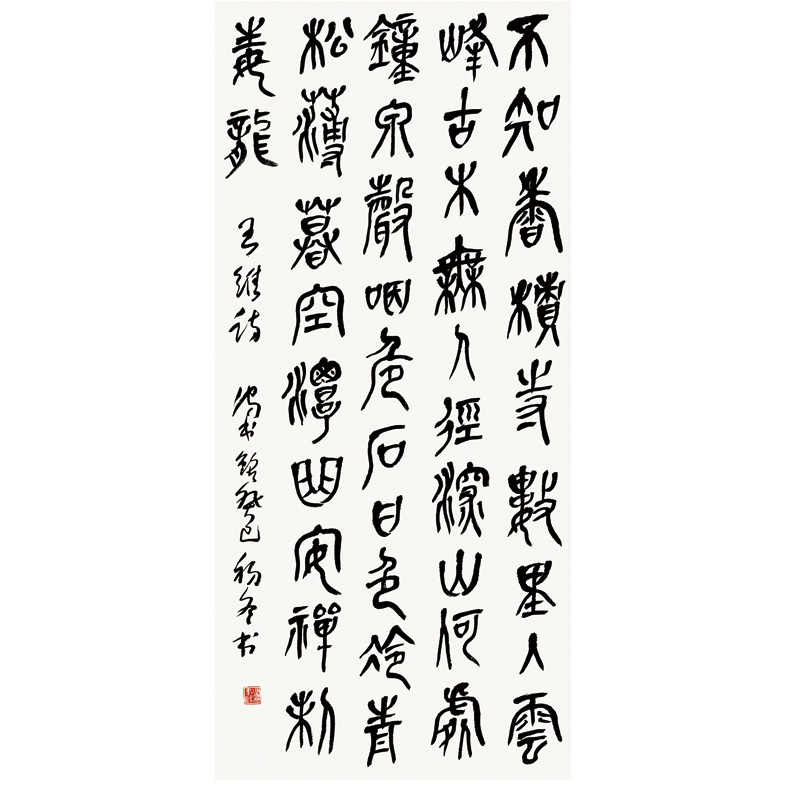 不知香積寺數里入雲
峰古木無人徑深山何處
鐘泉聲咽危石日色冷青
松薄暮空潭曲安禪制
毒龍 王維詩 癸巳初冬書